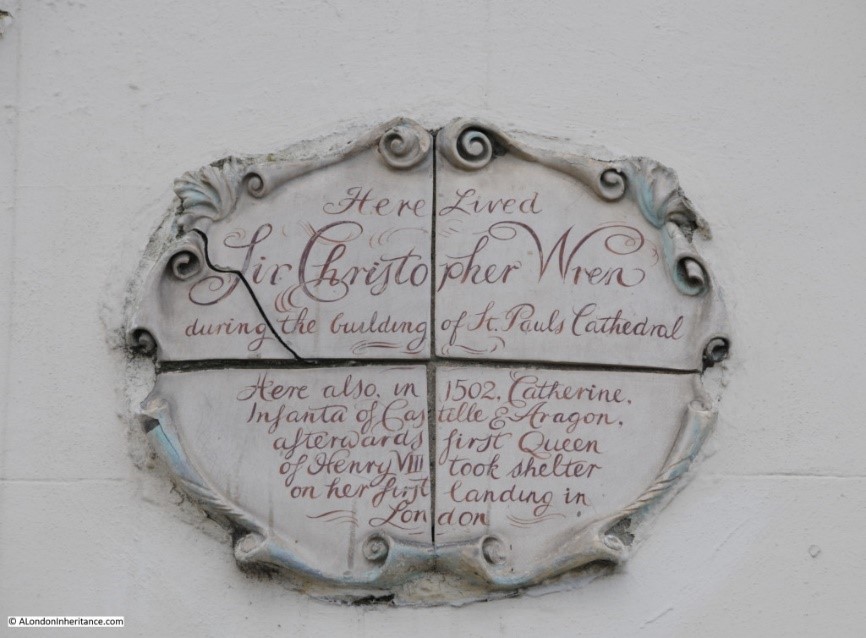 Here Lived
Sir Christopher Wren
during the building of St. Pauls Cathedral
Here also, in 1502, Catherine,
Infanta of Castille & Aragon,
afterwards first Queen
of Henry VIII took shelter
on her first landing in
London
© ALondonInheritance.com